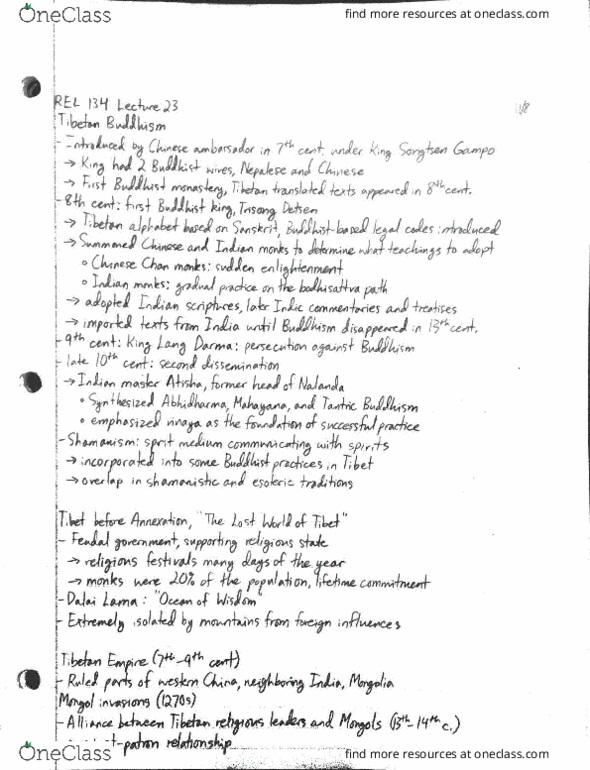 OneClass
find more resources at oneclass.com
REL 134 Lecture 23
Tibetan Buddhism
- Introduced by Chinese ambassador in 7th cent. under King Songtsen Gampo
→ King had 2 Buddhist wives, Nepalese and Chinese
→ First Buddhist monastery, Tibetan translated texts appeared in 8th cent.
- 8th cent: first Buddhist king, Trisong Detsen
→ Tibetan alphabet based on Sanskrit, Buddhist-based legal codes introduced
→ Summoned Chinese and Indian monks to determine what teachings to adopt
° Chinese Chan monks: sudden enlightenment
° Indian monks: gradual practice on the bodhisattva path
→ adopted Indian scriptures, later Indic commentaries and treatises
→ imported texts from India until Buddhism disappeared in 13th cent.
- 9th cent: King Lang Darma: persecution against Buddhism
- late 10th cent: second dissemination
→ Indian master Atisha, former head of Nalanda
• Synthesized Abhidharma, Mahayana, and Tantric Buddhism
• emphasized vinaya as the foundation of successful practice
- Shamanism: sprit medium communicating with spirits
→ incorporated into some Buddhist practices in Tibet
→ overlap in shamanistic and esoteric traditions
Tibet before Annexation, "The Lost World of Tibet"
- Feudal government, supporting religious state
→ religious festivals many days of the year
→ monks were 20% of the population, lifetime commitment
- Dalai Lama: "Ocean of Wisdom"
- Extremely isolated by mountains from foreign influences
Tibetan Empire (7th-9th cent)
- Ruled parts of western China, neighboring India, Mongolia
Mongol invasions (1270s)
- Alliance between Tibetan religious leaders and Mongols (13th-14th c.)
-patron relationship
OneClass
find more resources at oneclass.com